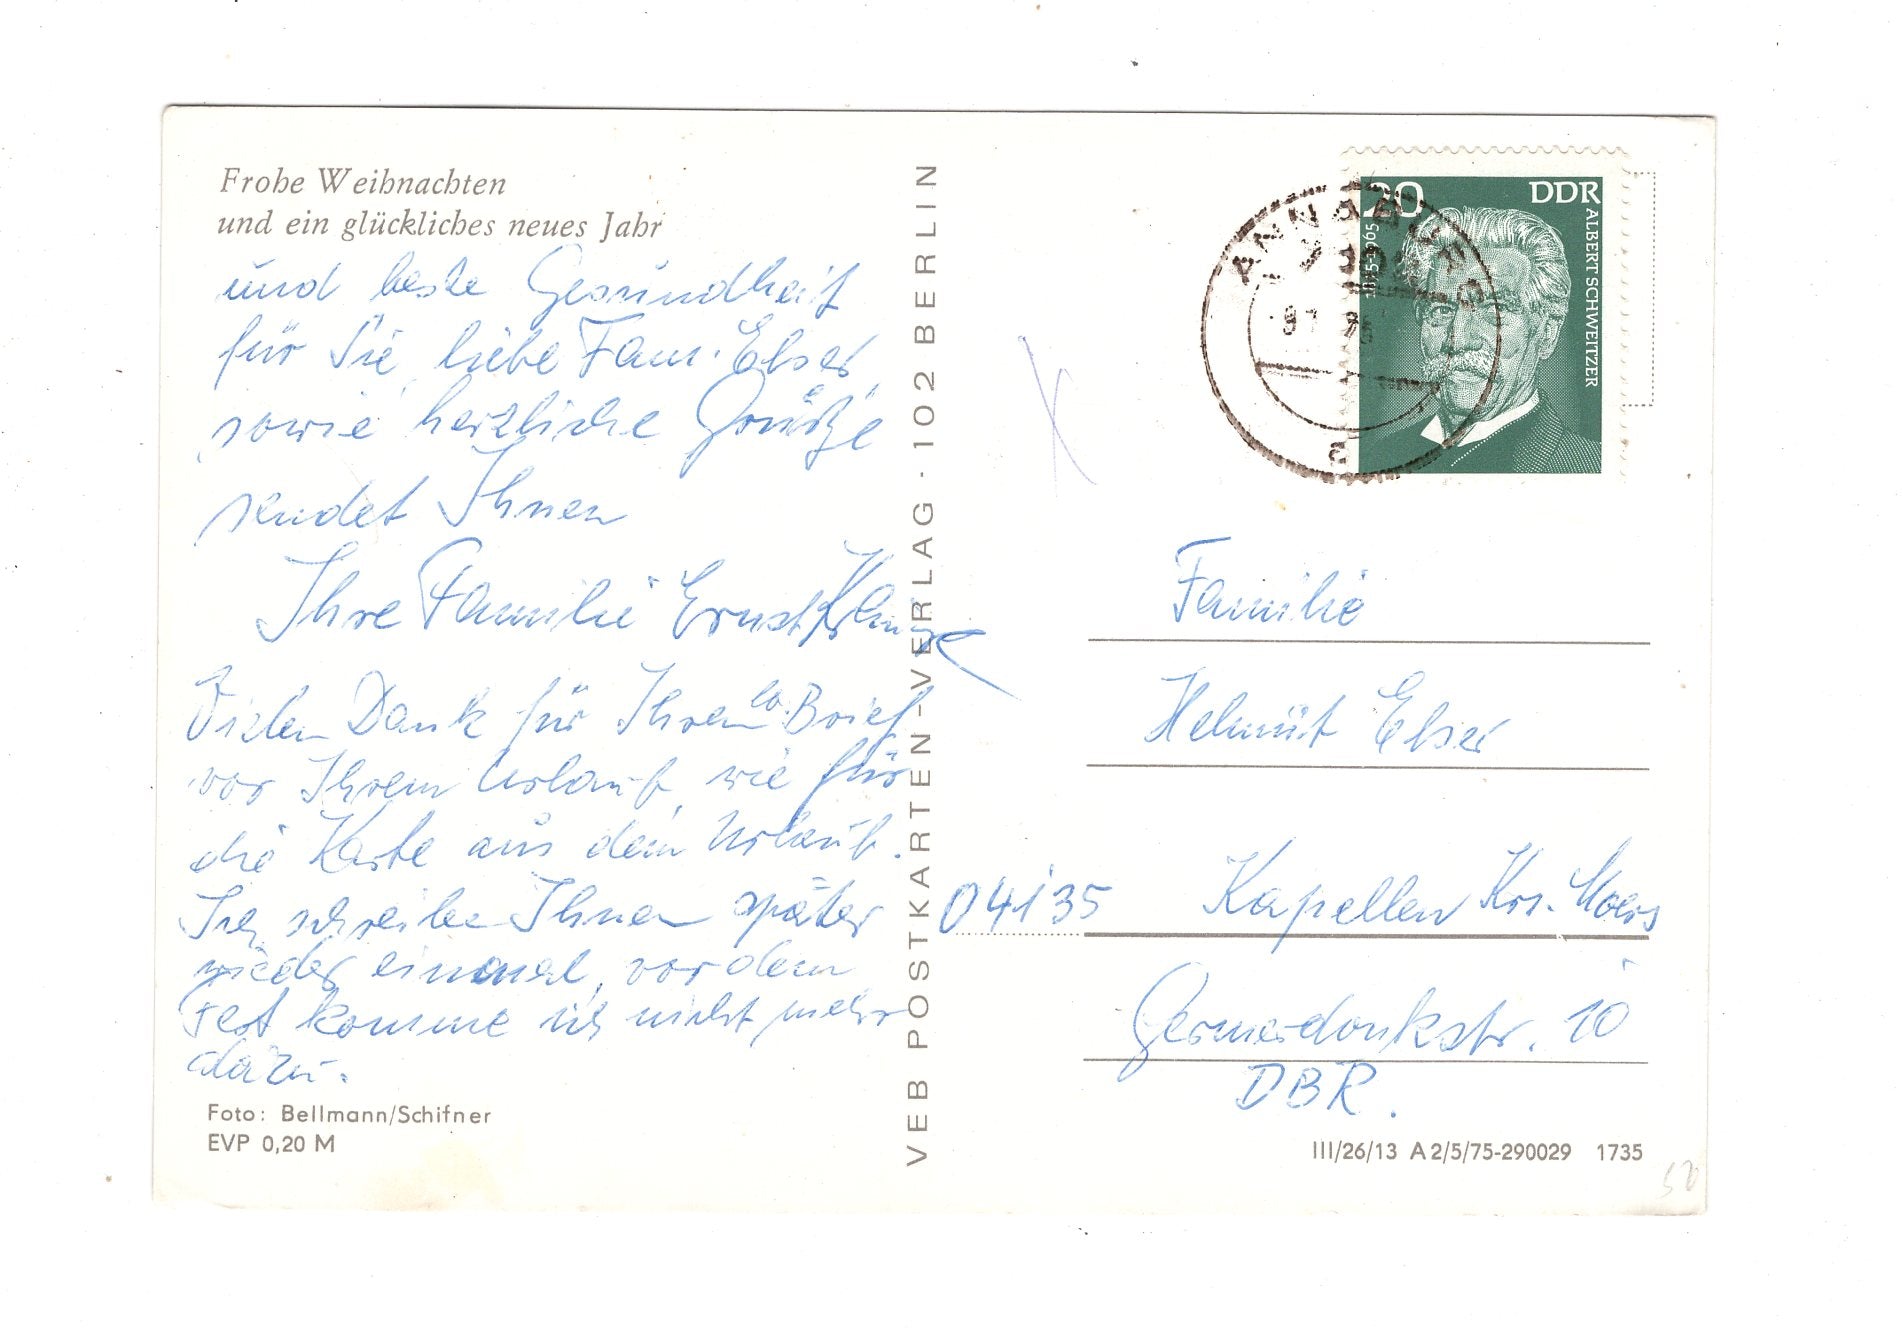 Frohe Weihnachten
und ein glückliches neues Jahr
und beste Gesundheit
für Sie, liebe Fam. Elser,
sowie herzliche Grüße
sendet Ihnen
Ihre Familie Ernst
Vielen Dank für Ihren lb. Brief
vor Ihrem Urlaub, wie für
die Karte aus dem Urlaub.
Ich schreibe Ihnen später
wieder einmal, vor dem
Fest komme ich nicht mehr
dazu.
Foto: Bellmann/Schifner
EVP 0,20 M
VEB POSTKARTEN-VERLAG · 102 BERLIN
20 DDR
ALBERT SCHWEITZER
1875-1965
ANNABERG
a
Familie
Helmut Elser
04135 Kapellen Krs. Moers
Germendonkstr. 10
DBR.
III/26/13 A 2/5/75-290029 1735
50